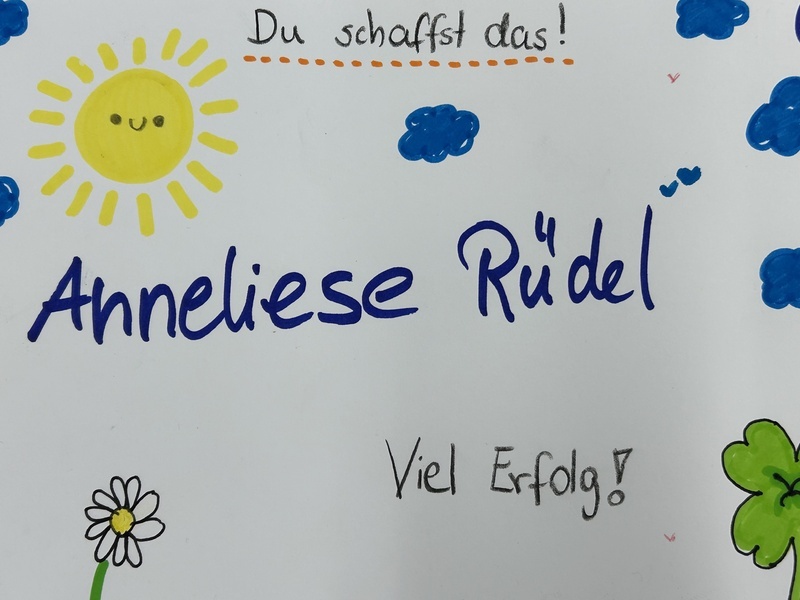 Du schaffst das!
Anneliese Rüdel
Viel Erfolg!